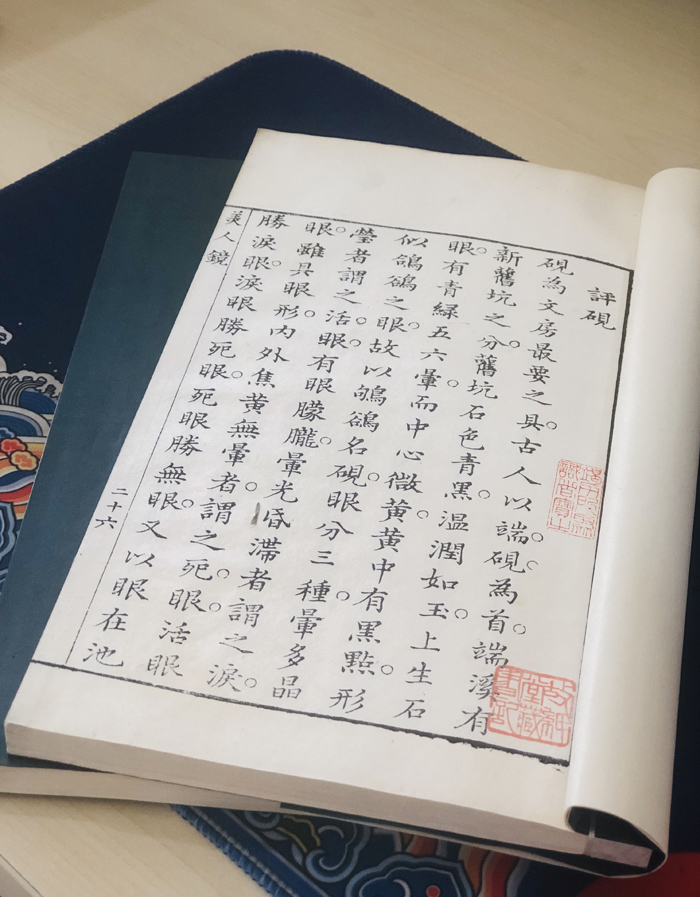 評硯
硯為文房最要之具。古人以端。硯。為首。端溪有
新舊坑之分。舊坑石色青黑。温潤如玉。上生石
眼。有青緑五六暈。而中心微黄。黄中有黑㸃。形
似鴝鵒之眼。故以鴝鵒名硯。眼分三種。暈多晶
瑩者謂之活。眼。有眼朦朧。暈光昏滯者謂之淚。
眼。雖具眼形。内外焦黄無暈者。謂之死。眼。活眼
勝淚。眼淚眼勝死眼。死眼勝無眼。又以眼在池
美人鏡
二十六